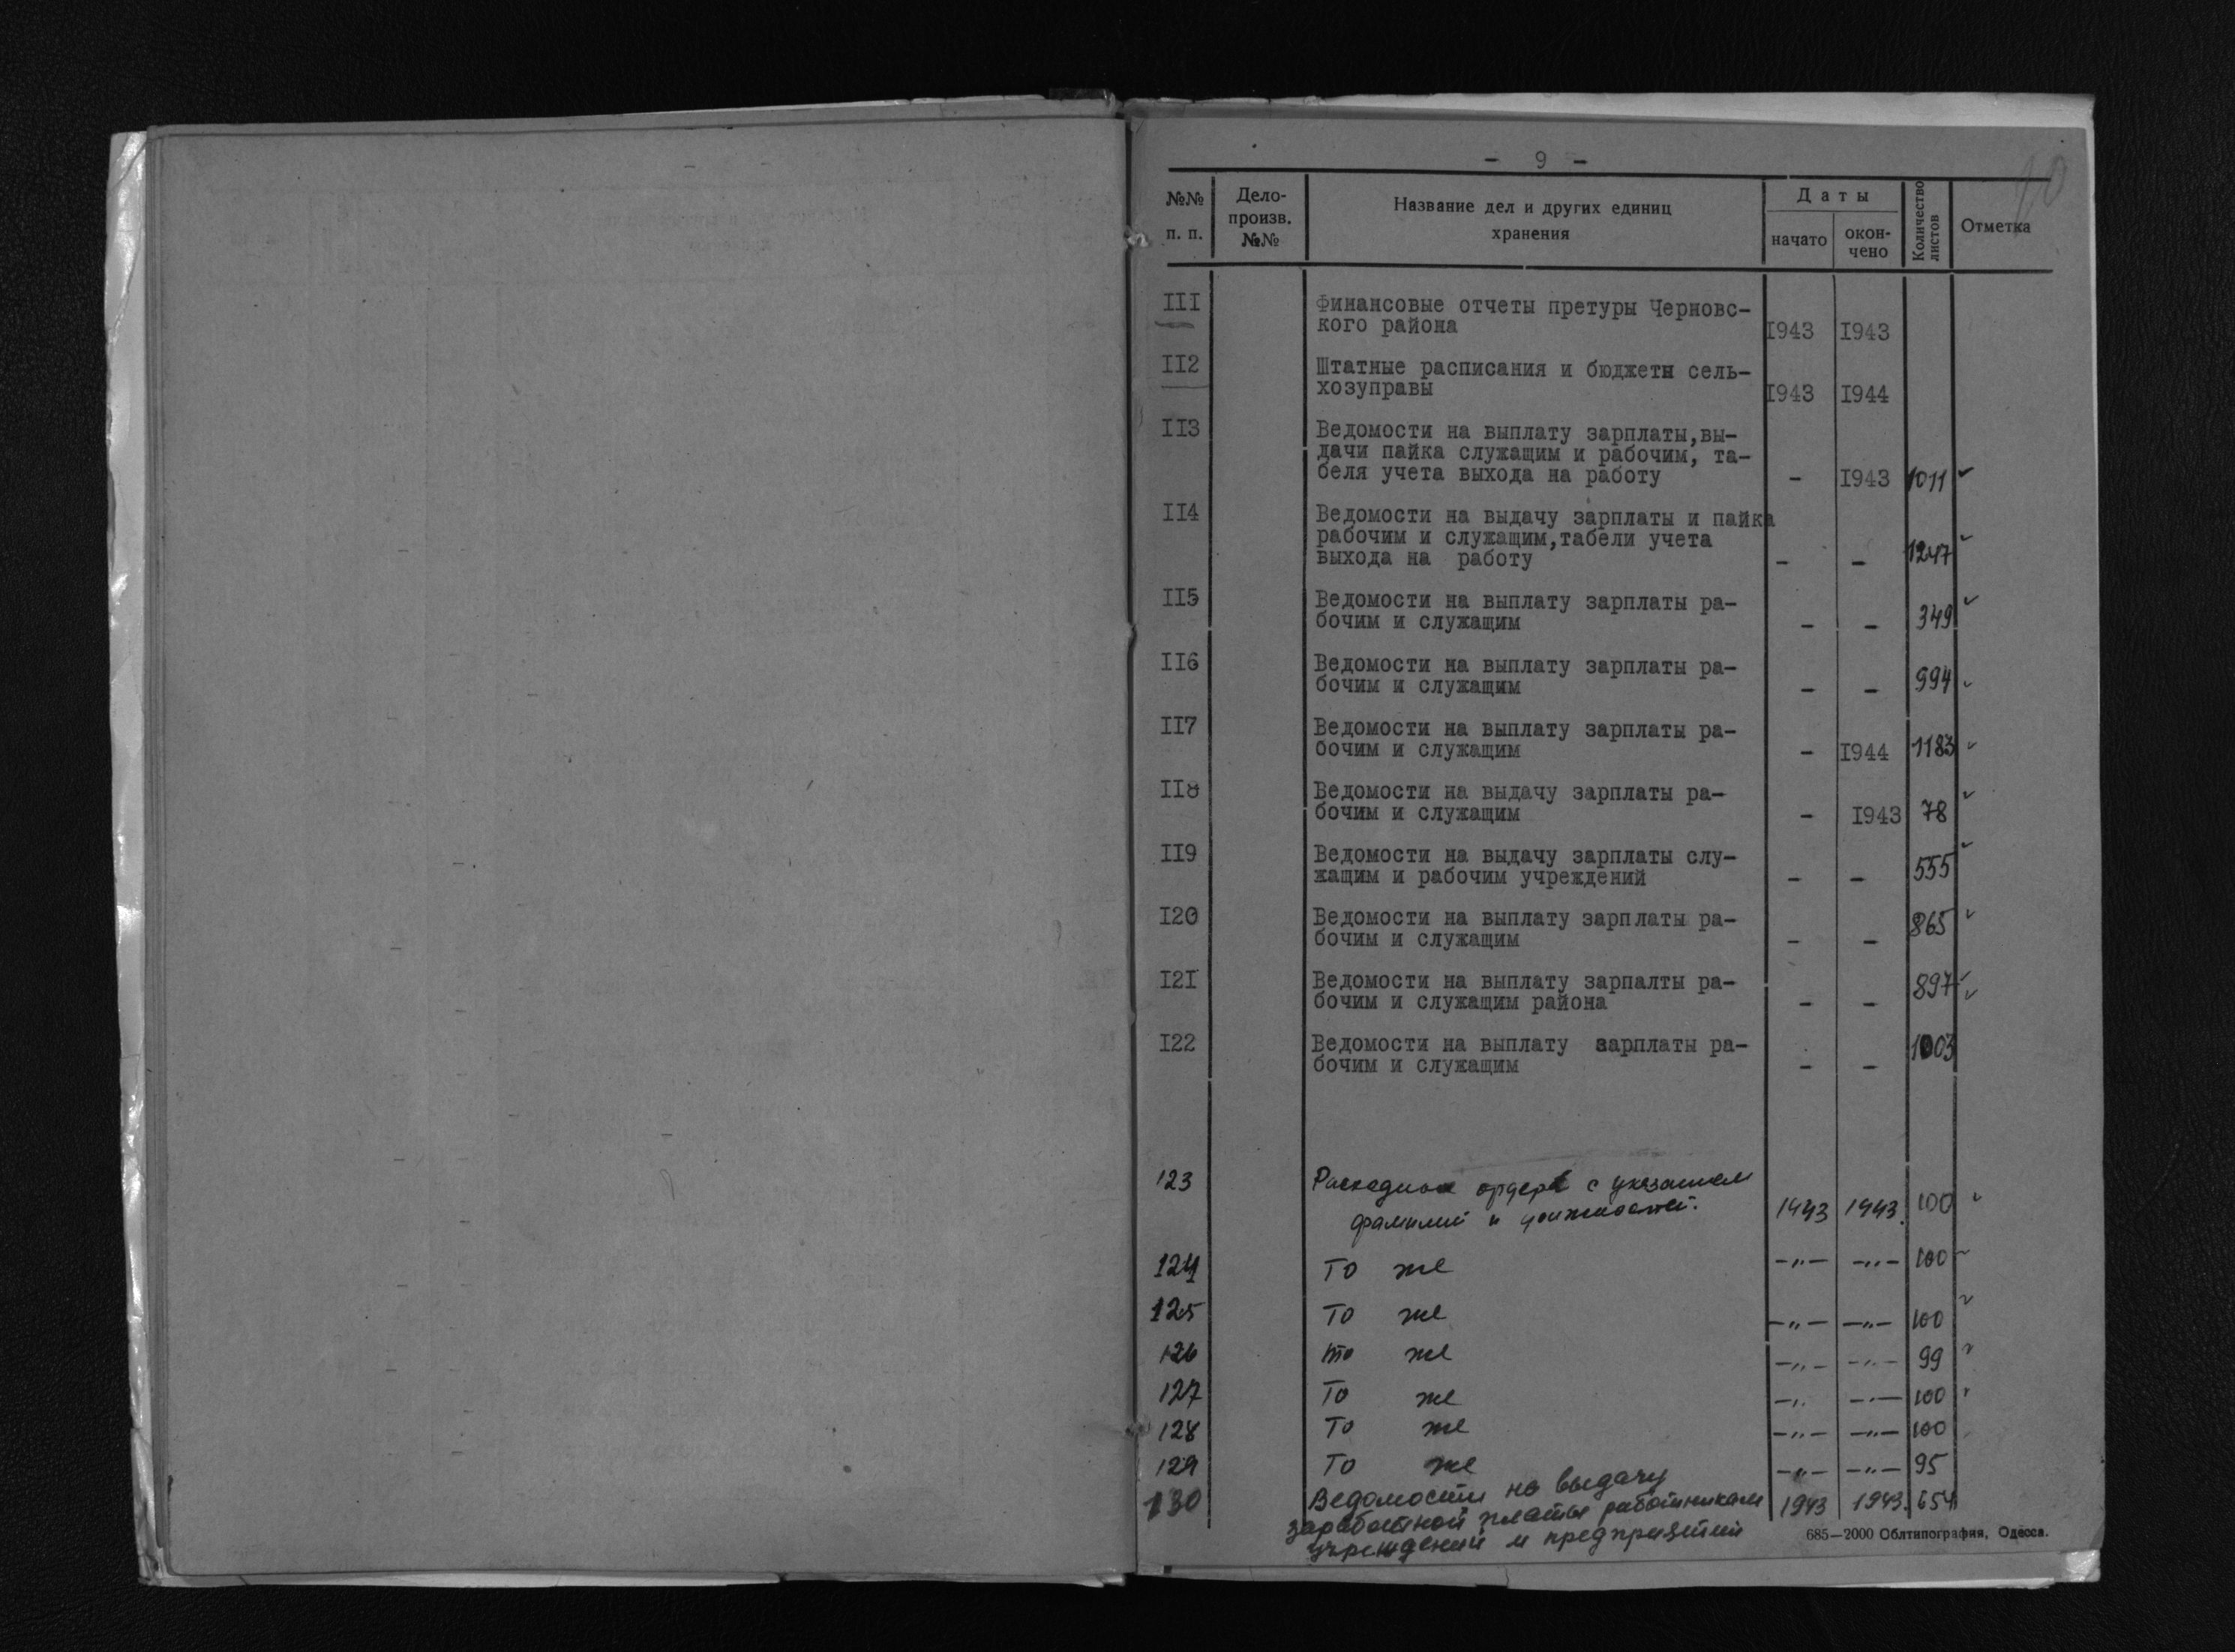 - 9 -
20
№№ п. п.
Дело- произв. №№
Название дел и других единиц хранения
Даты
начато
окон- чено
Количество листов
Отметка
III Финансовые отчеты претуры Черновс-
кого района I943 I943
II2 Штатные расписания и бюджетн сель-
хозуправы I943 I944
II3 Ведомости на выплату зарплаты,вы-
дачи пайка служащим и рабочим, та-
беля учета выхода на работу - I943 1011 ✓
II4 Ведомости на выдачу зарплаты и пайка
рабочим и служащим,табели учета
выхода на работу - - 1247 ✓
II5 Ведомости на выплату зарплаты ра-
бочим и служащим - - 349 ✓
II6 Ведомости на выплату зарплаты ра-
бочим и служащим - - 994 ✓
II7 Ведомости на выплату зарплаты ра-
бочим и служащим - I944 1183 ✓
II8 Ведомости на выдачу зарплаты ра-
бочим и служащим - I943 78 ✓
II9 Ведомости на выдачу зарплаты слу-
жащим и рабочим учреждений - - 555 ✓
I20 Ведомости на выплату зарплаты ра-
бочим и служащим - - 865 ✓
I2I Ведомости на выплату зарпалты ра-
бочим и служащим района - - 897 ✓
I22 Ведомости на выплату зарплаты ра-
бочим и служащим - - 1003
123 Расходные ордера с указанием
фамилий и должностей. 1943 1943. 100 ✓
124 То же -„- -„- 100 ✓
125 То же -„- -„- 100 ✓
126 то же -„- -„- 99 ✓
127 То же -„- -„- 100 ✓
128 То же -„- -„- 100
129 То же -„- -„- 95
130 Ведомости на выдачу
заработной платы работникам 1943 1943. 654
учреждений и предприятий
685—2000 Облтипография, Одесса.